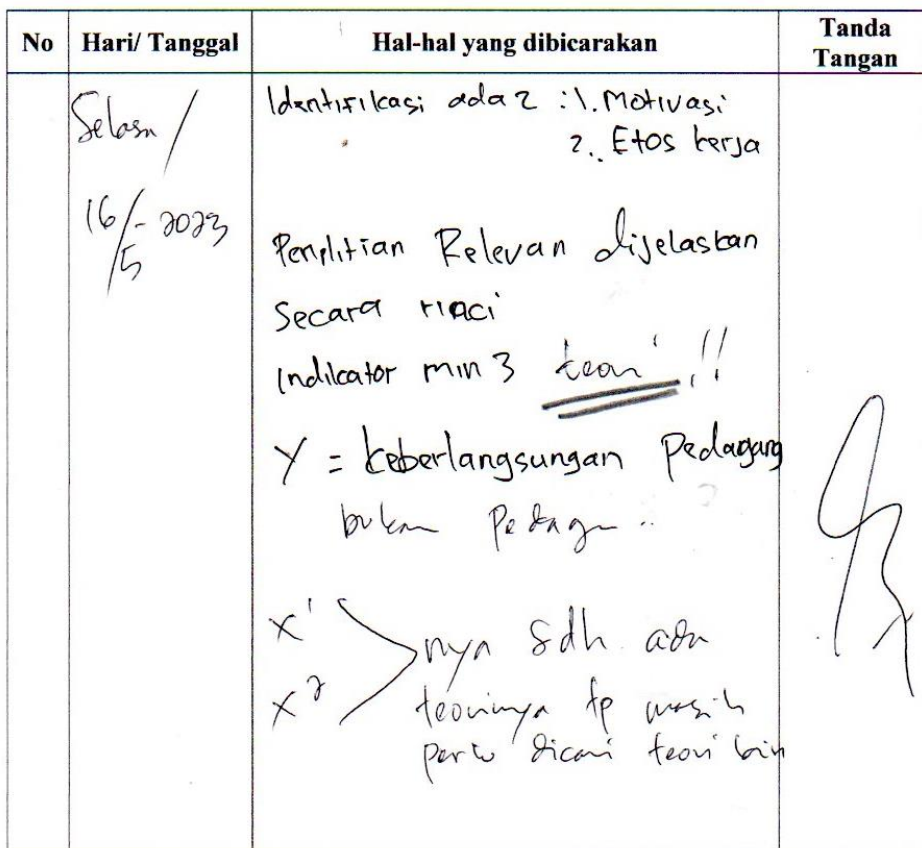 No Hari/ Tanggal Hal-hal yang dibicarakan Tanda Tangan
Selasa /
16/5 - 2023
Identifikasi ada 2 : 1. Motivasi
2. Etos kerja
Penelitian Relevan dijelaskan
Secara rinci
Indikator min 3 teori !!
Y = keberlangsungan Pedagang
bukan Pedagn ..
X1
X2
nya sdh ada
teorinya tp masih
perlu dicari teori lain